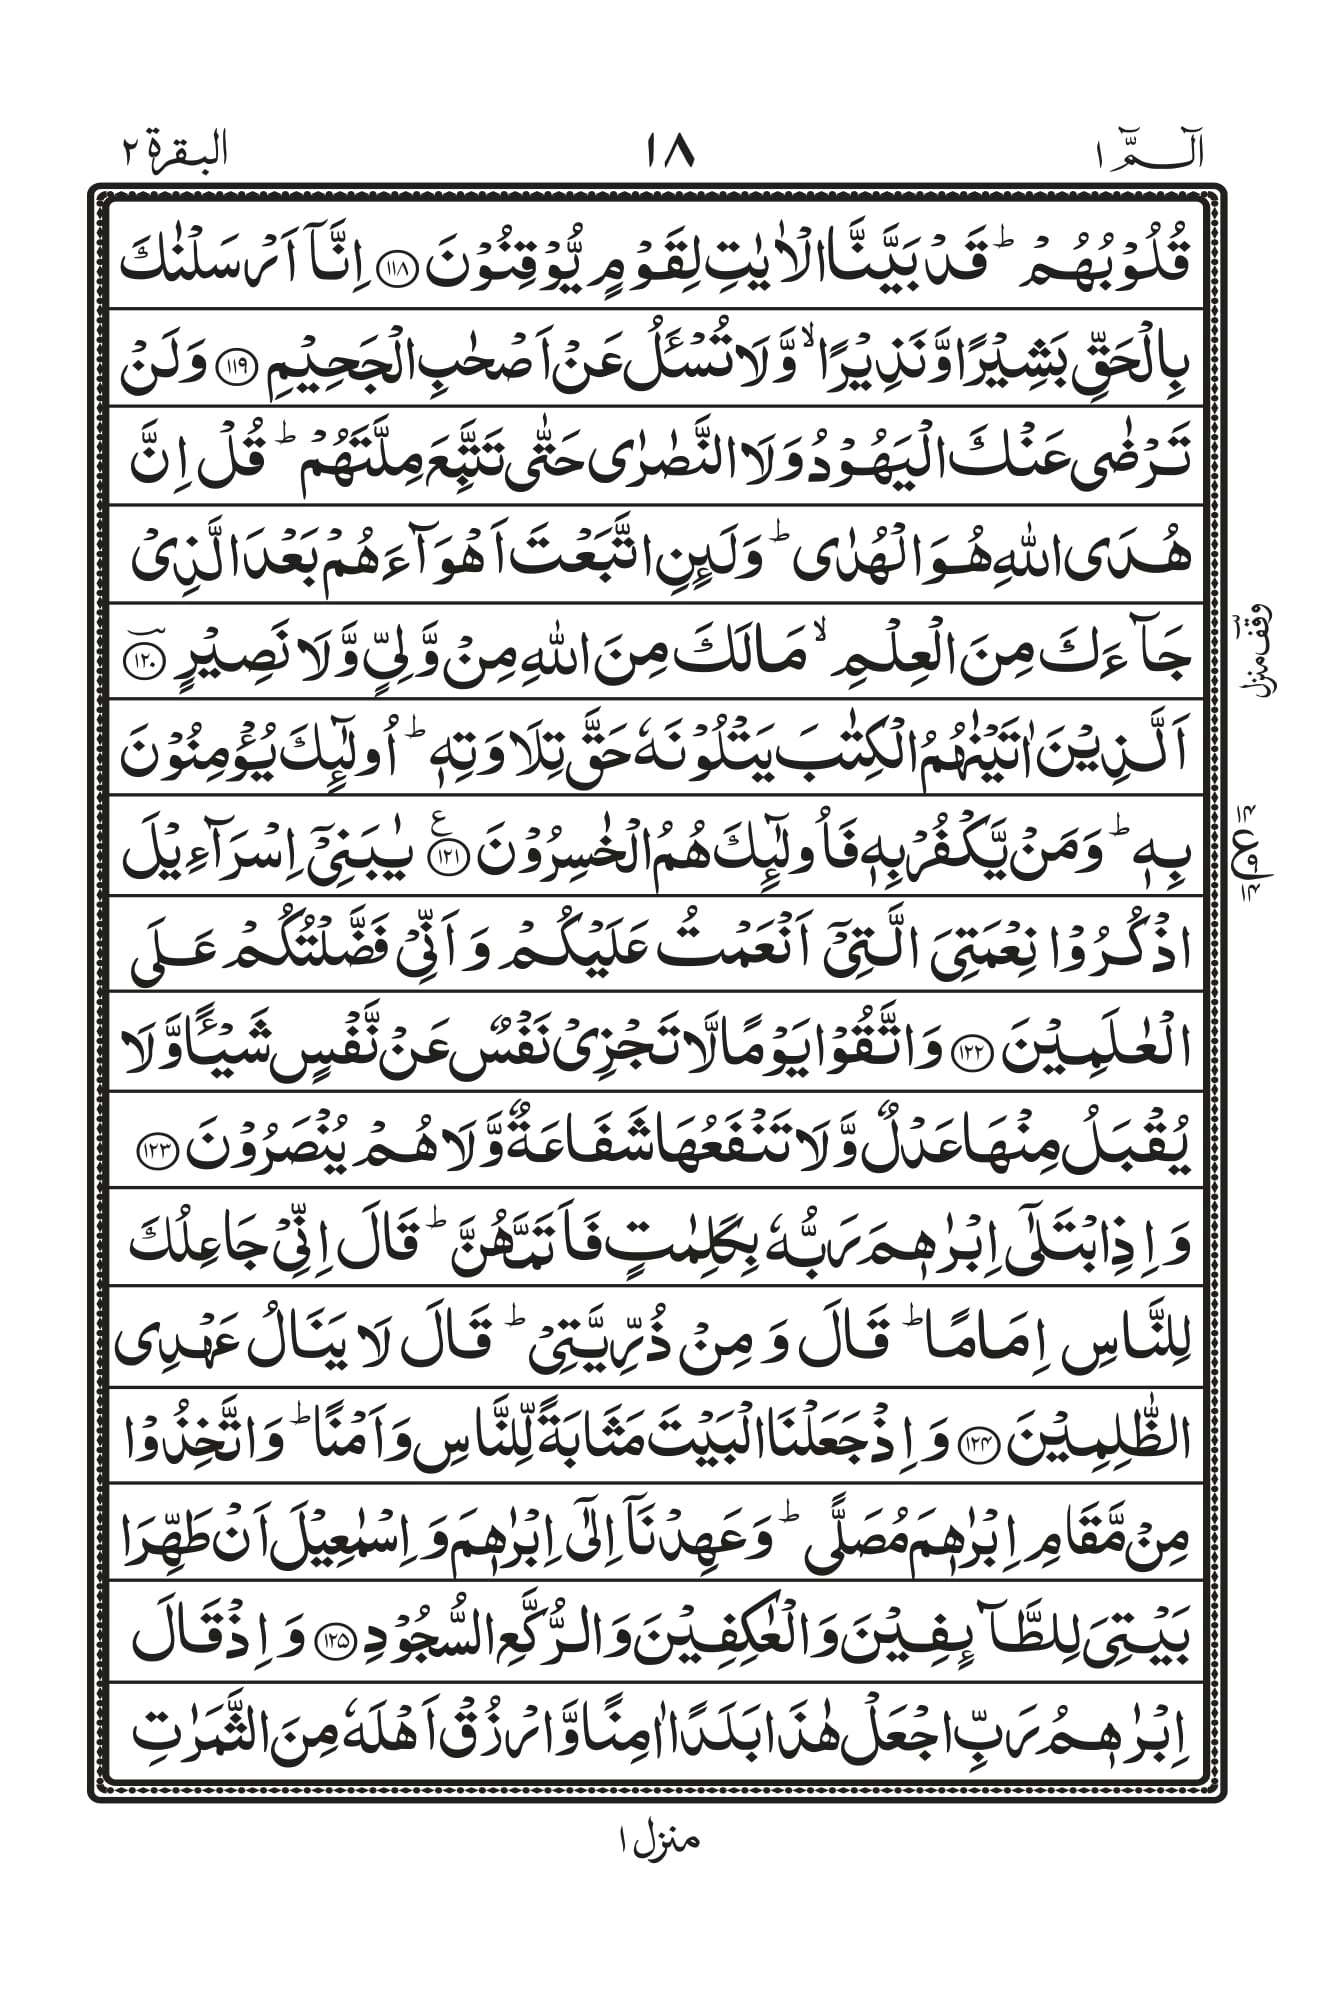 الٓـمّٓ ١ ١٨ البقرة ٢
قُلُوْبُهُمْ ؕ قَدْ بَيَّنَّا الْاٰيٰتِ لِقَوْمٍ يُّوْقِنُوْنَ ﴿١١٨﴾ اِنَّاۤ اَرْسَلْنٰكَ
بِالْحَقِّ بَشِيْرًا وَّنَذِيْرًا ۙ وَّلَا تُسْـَٔلُ عَنْ اَصْحٰبِ الْجَحِيْمِ ﴿١١٩﴾ وَلَنْ
تَرْضٰى عَنْكَ الْيَهُوْدُ وَلَا النَّصٰرٰى حَتّٰى تَتَّبِعَ مِلَّتَهُمْ ؕ قُلْ اِنَّ
هُدَى اللّٰهِ هُوَ الْهُدٰى ؕ وَلَئِنِ اتَّبَعْتَ اَهْوَآءَهُمْ بَعْدَ الَّذِىْ
جَآءَكَ مِنَ الْعِلْمِ ۙ مَا لَكَ مِنَ اللّٰهِ مِنْ وَّلِىٍّ وَّلَا نَصِيْرٍ ﴿١٢٠﴾ؔ
وقف منزل
اَلَّذِيْنَ اٰتَيْنٰهُمُ الْكِتٰبَ يَتْلُوْنَهٗ حَقَّ تِلَاوَتِهٖ ؕ اُولٰٓئِكَ يُؤْمِنُوْنَ
بِهٖ ؕ وَمَنْ يَّكْفُرْ بِهٖ فَاُولٰٓئِكَ هُمُ الْخٰسِرُوْنَ ﴿١٢١﴾ع يٰبَنِىْۤ اِسْرَآءِيْلَ
١٤ ع ٩ ١٤
اذْكُرُوْا نِعْمَتِىَ الَّتِىْۤ اَنْعَمْتُ عَلَيْكُمْ وَاَنِّىْ فَضَّلْتُكُمْ عَلَى
الْعٰلَمِيْنَ ﴿١٢٢﴾ وَاتَّقُوْا يَوْمًا لَّا تَجْزِىْ نَفْسٌ عَنْ نَّفْسٍ شَيْـًٔا وَّلَا
يُقْبَلُ مِنْهَا عَدْلٌ وَّلَا تَنْفَعُهَا شَفَاعَةٌ وَّلَا هُمْ يُنْصَرُوْنَ ﴿١٢٣﴾
وَاِذِ ابْتَلٰٓى اِبْرٰهٖمَ رَبُّهٗ بِكَلِمٰتٍ فَاَتَمَّهُنَّ ؕ قَالَ اِنِّىْ جَاعِلُكَ
لِلنَّاسِ اِمَامًا ؕ قَالَ وَمِنْ ذُرِّيَّتِىْ ؕ قَالَ لَا يَنَالُ عَهْدِى
الظّٰلِمِيْنَ ﴿١٢٤﴾ وَاِذْ جَعَلْنَا الْبَيْتَ مَثَابَةً لِّلنَّاسِ وَاَمْنًا ؕ وَاتَّخِذُوْا
مِنْ مَّقَامِ اِبْرٰهٖمَ مُصَلًّى ؕ وَعَهِدْنَاۤ اِلٰٓى اِبْرٰهٖمَ وَاِسْمٰعِيْلَ اَنْ طَهِّرَا
بَيْتِىَ لِلطَّآئِفِيْنَ وَالْعٰكِفِيْنَ وَالرُّكَّعِ السُّجُوْدِ ﴿١٢٥﴾ وَاِذْ قَالَ
اِبْرٰهٖمُ رَبِّ اجْعَلْ هٰذَا بَلَدًا اٰمِنًا وَّارْزُقْ اَهْلَهٗ مِنَ الثَّمَرٰتِ
منزل ١